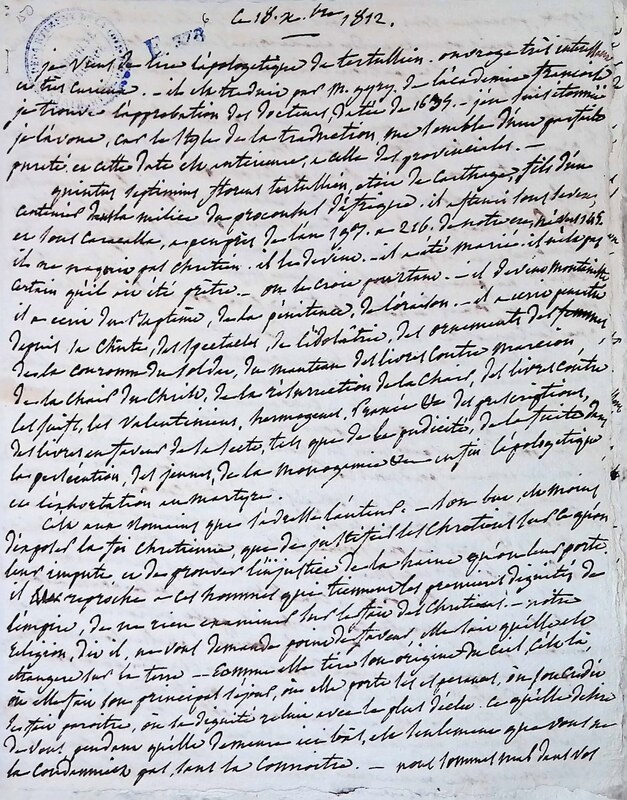 150
6
le 18. Xbre 1812.
E 378
je viens de lire l'apologetique de tertullien. ouvrage très intéressant
et très curieux. - il est traduit par M. gyry. de l'academie francoise
je trouve l'approbation des docteurs, datée de 1639. - j'en suis étonnée
je l'avoue, car le style de la traduction, me semble d'une parfaite
pureté. et cette date est antérieure, a celle des provinciales. -
quintus septimius florens tertullien, étoit de Carthage, fils d'un
Centenier dans la milice du proconsul d'afrique. il a fleuri sous severe,
et sous Caracalla, a peu près de l'an 197. a 216. de notre ere,
il ne naquit pas chretien. il le devint. - il a été marié. il n'est pas
certain qu'il ait été prêtre. - on le croit pourtant. - il devint montaniste
il a écrit du Baptême, de la pénitence, de l'oraison. - il a écrit
depuis sa chute, des spectacles, de l'idolâtrie, des ornements des femmes
de la couronne du soldat, du manteau des livres contre marcion
de la chair du Christ, de la résurrection de la chair, des livres contre
les juifs, les valentiniens, hermogenes, Praxée &c des prescriptions,
des livres en faveur de sa secte, tels que de la pudicité, de la fuite dans
la persécution, des jeunes, de la Monogamie &c - enfin l'apologetique
et l'exhortation au martyre.
C'est aux romains que s'adresse l'auteur. - son but, est moins
d'exposer la foi chretienne, que de justifier les Chrétiens sur ce qu'on
leur impute, et de prouver l'injustice de la haine qu'on leur porte.
il reproche a ces hommes qui tiennent les premieres dignités de
l'empire, de ne rien examiner sur le fait des Chretiens. - notre
religion, dit il, ne vous demande point de faveur, elle sait qu'elle est
etrangere sur la terre - comme elle tire son origine du ciel, c'est là
où elle fait son principal séjour, où elle porte ses esperances, où son credit
se fait paroitre, où sa dignité reluit avec le plus d'éclat. ce qu'elle desire
de vous, pendant qu'elle demeure ici bas, est seulement que vous ne
la condamniez pas, sans la connoitre. - nous sommes mal dans vos